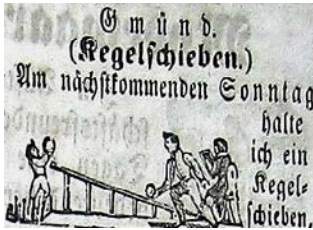 Gmünd.
(Kegelſchieben.)
Am nächſtkommenden Sonntag
halte
ich ein
Kegel=
ſchieben,